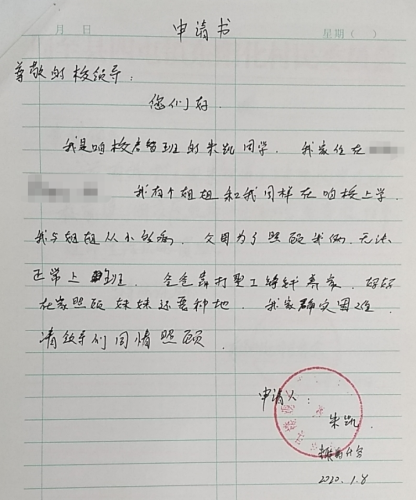 月 日 申请书 星期( )
尊敬的校领导:
您们好
我是咱校启智班的朱凯同学. 我家住在
我有个姐姐和我同样在咱校上学.
我与姐姐从小 父母为了照顾我俩, 无法
正常上班. 爸爸靠打零工 养家, 妈妈
在家照顾妹妹还要种地. 我家 困难
请领导们同情照顾.
申请人:
朱凯
2020.1.8